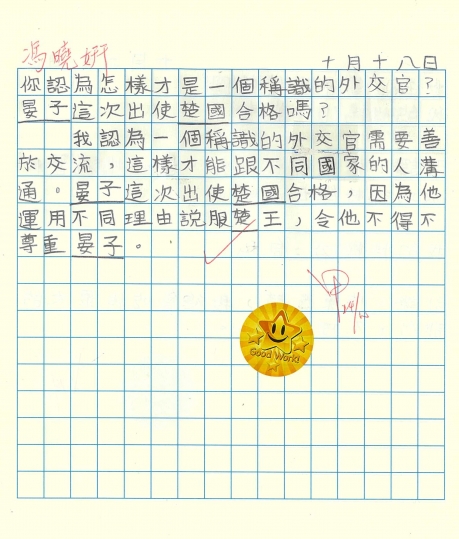 馮曉妍
十月十八日
你認為怎樣才是一個稱識的外交官？
晏子這次出使楚國合格嗎？
我認為一個稱識的外交官需要善
於交流，這樣才能跟不同國家的人溝
通。晏子這次出使楚國合格，因為他
運用不同理由說服楚王，令他不得不
尊重晏子。
Good Work!